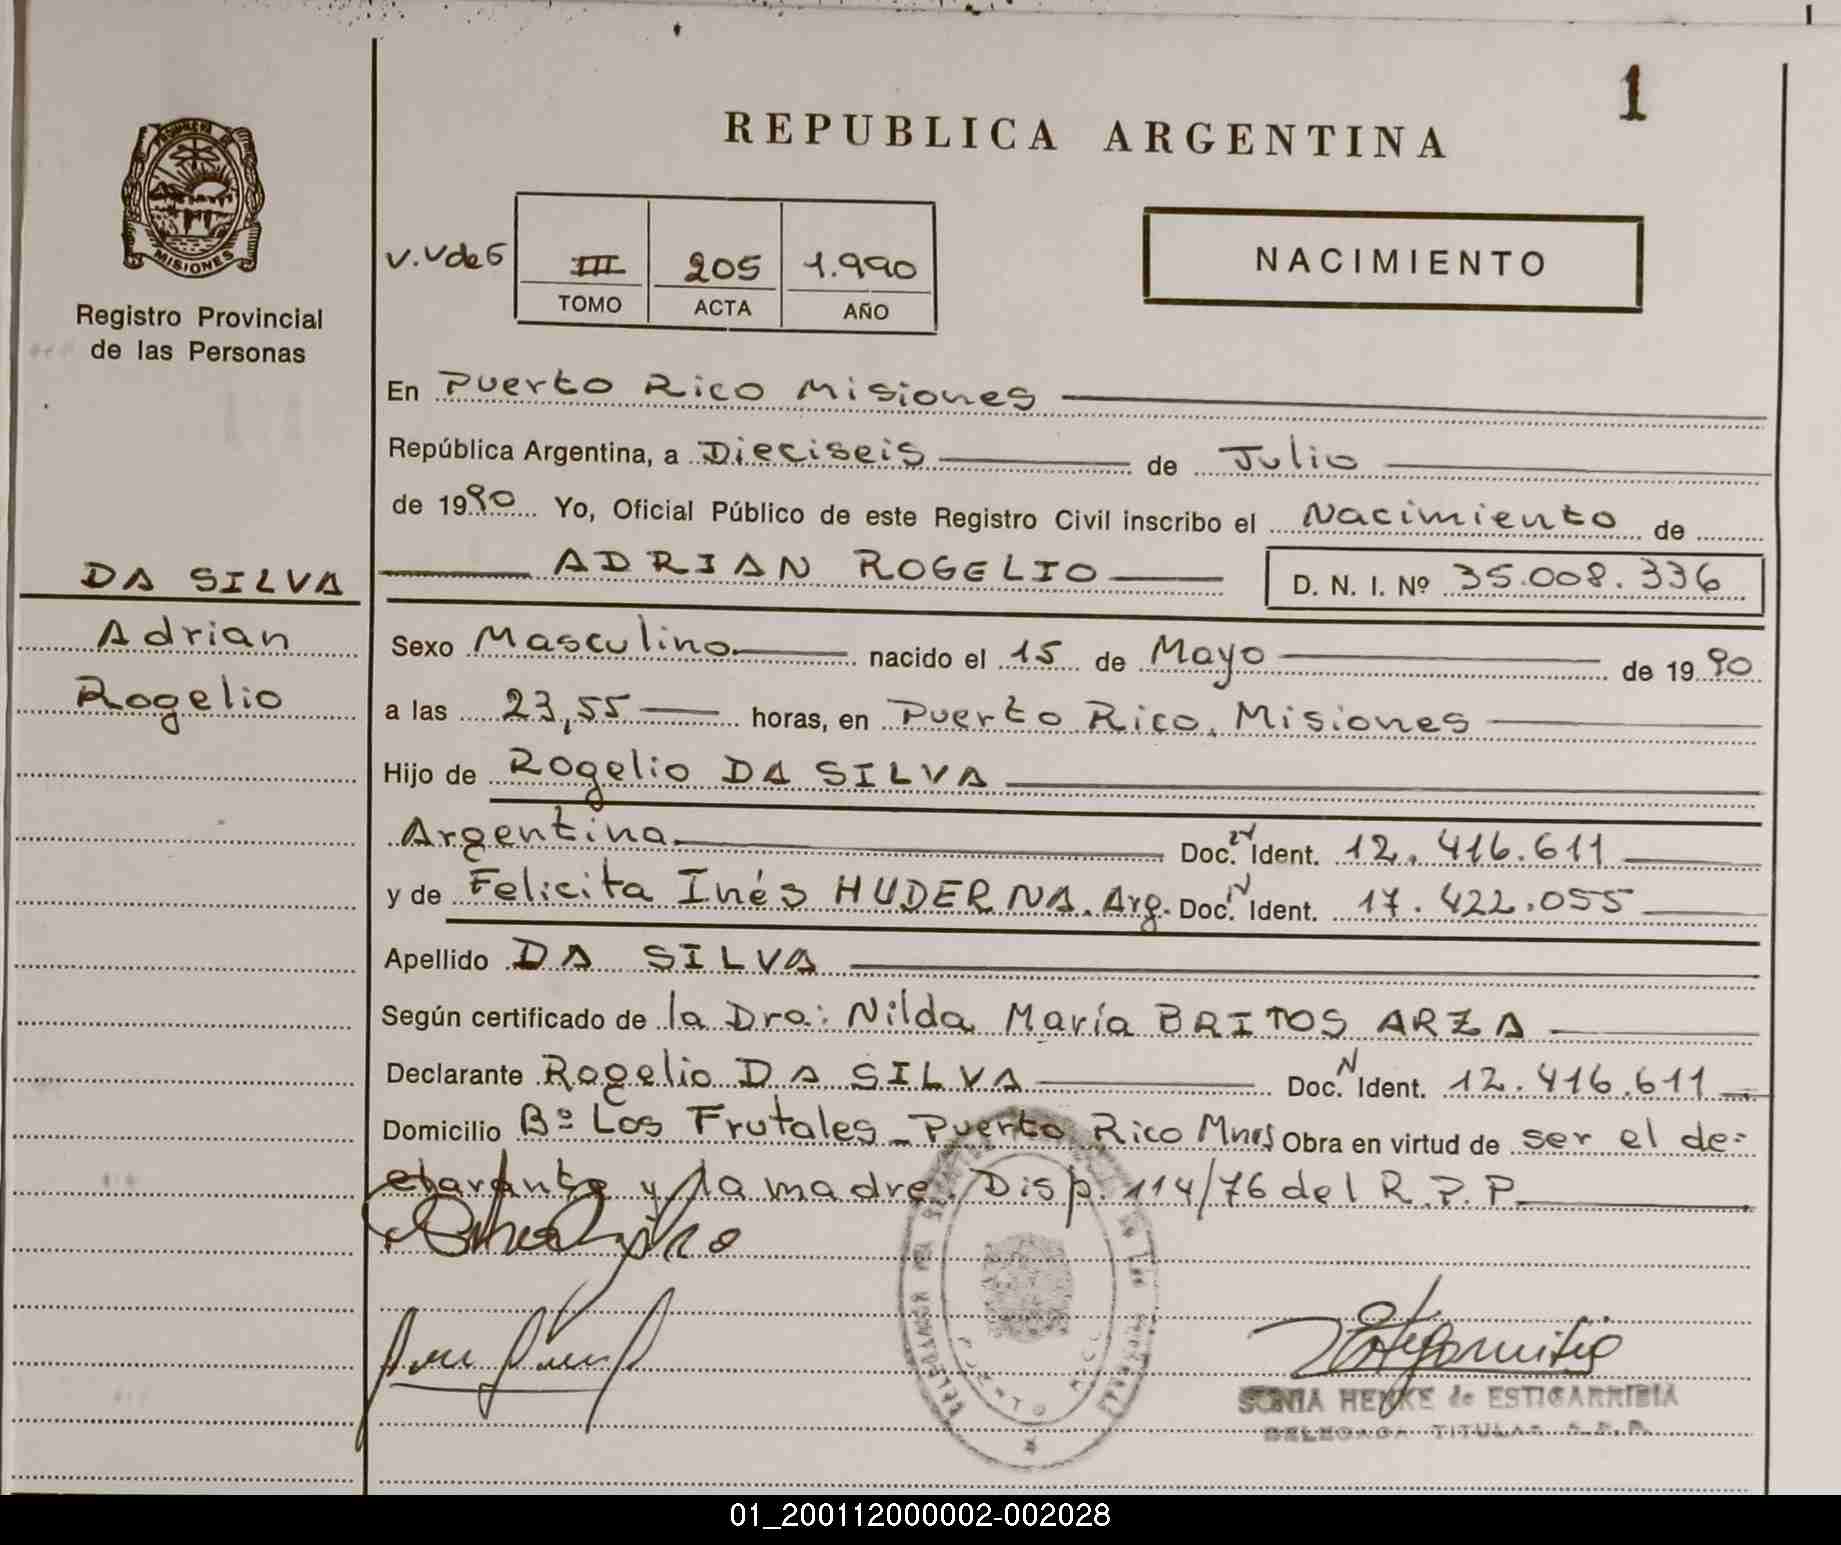 1
REPUBLICA ARGENTINA
MISIONES
Registro Provincial
de las Personas
v.vdeG
III 205 1.990
TOMO ACTA AÑO
NACIMIENTO
En Puerto Rico Misiones
República Argentina, a Dieciseis de Julio
de 1990 Yo, Oficial Público de este Registro Civil inscribo el Nacimiento de
DA SILVA
Adrian
Rogelio
ADRIAN ROGELIO D. N. I. Nº 35.008.336
Sexo Masculino nacido el 15 de Mayo de 1990
a las 23,55 horas, en Puerto Rico, Misiones
Hijo de Rogelio DA SILVA
Argentina Doc. N Ident. 12.416.611
y de Felicita Inés HUDERNA. Arg. Doc. N Ident. 17.422.055
Apellido DA SILVA
Según certificado de la Dra: Nilda María BRITOS ARZA
Declarante Rogelio DA SILVA Doc. N Ident. 12.416.611
Domicilio Bº Los Frutales - Puerto Rico Mnes Obra en virtud de ser el de-
clarante y la madre. Disp. 114/76 del R.P.P
SONIA HENKE de ESTIGARRIBIA
DELEGADA TITULAR
01_200112000002-002028